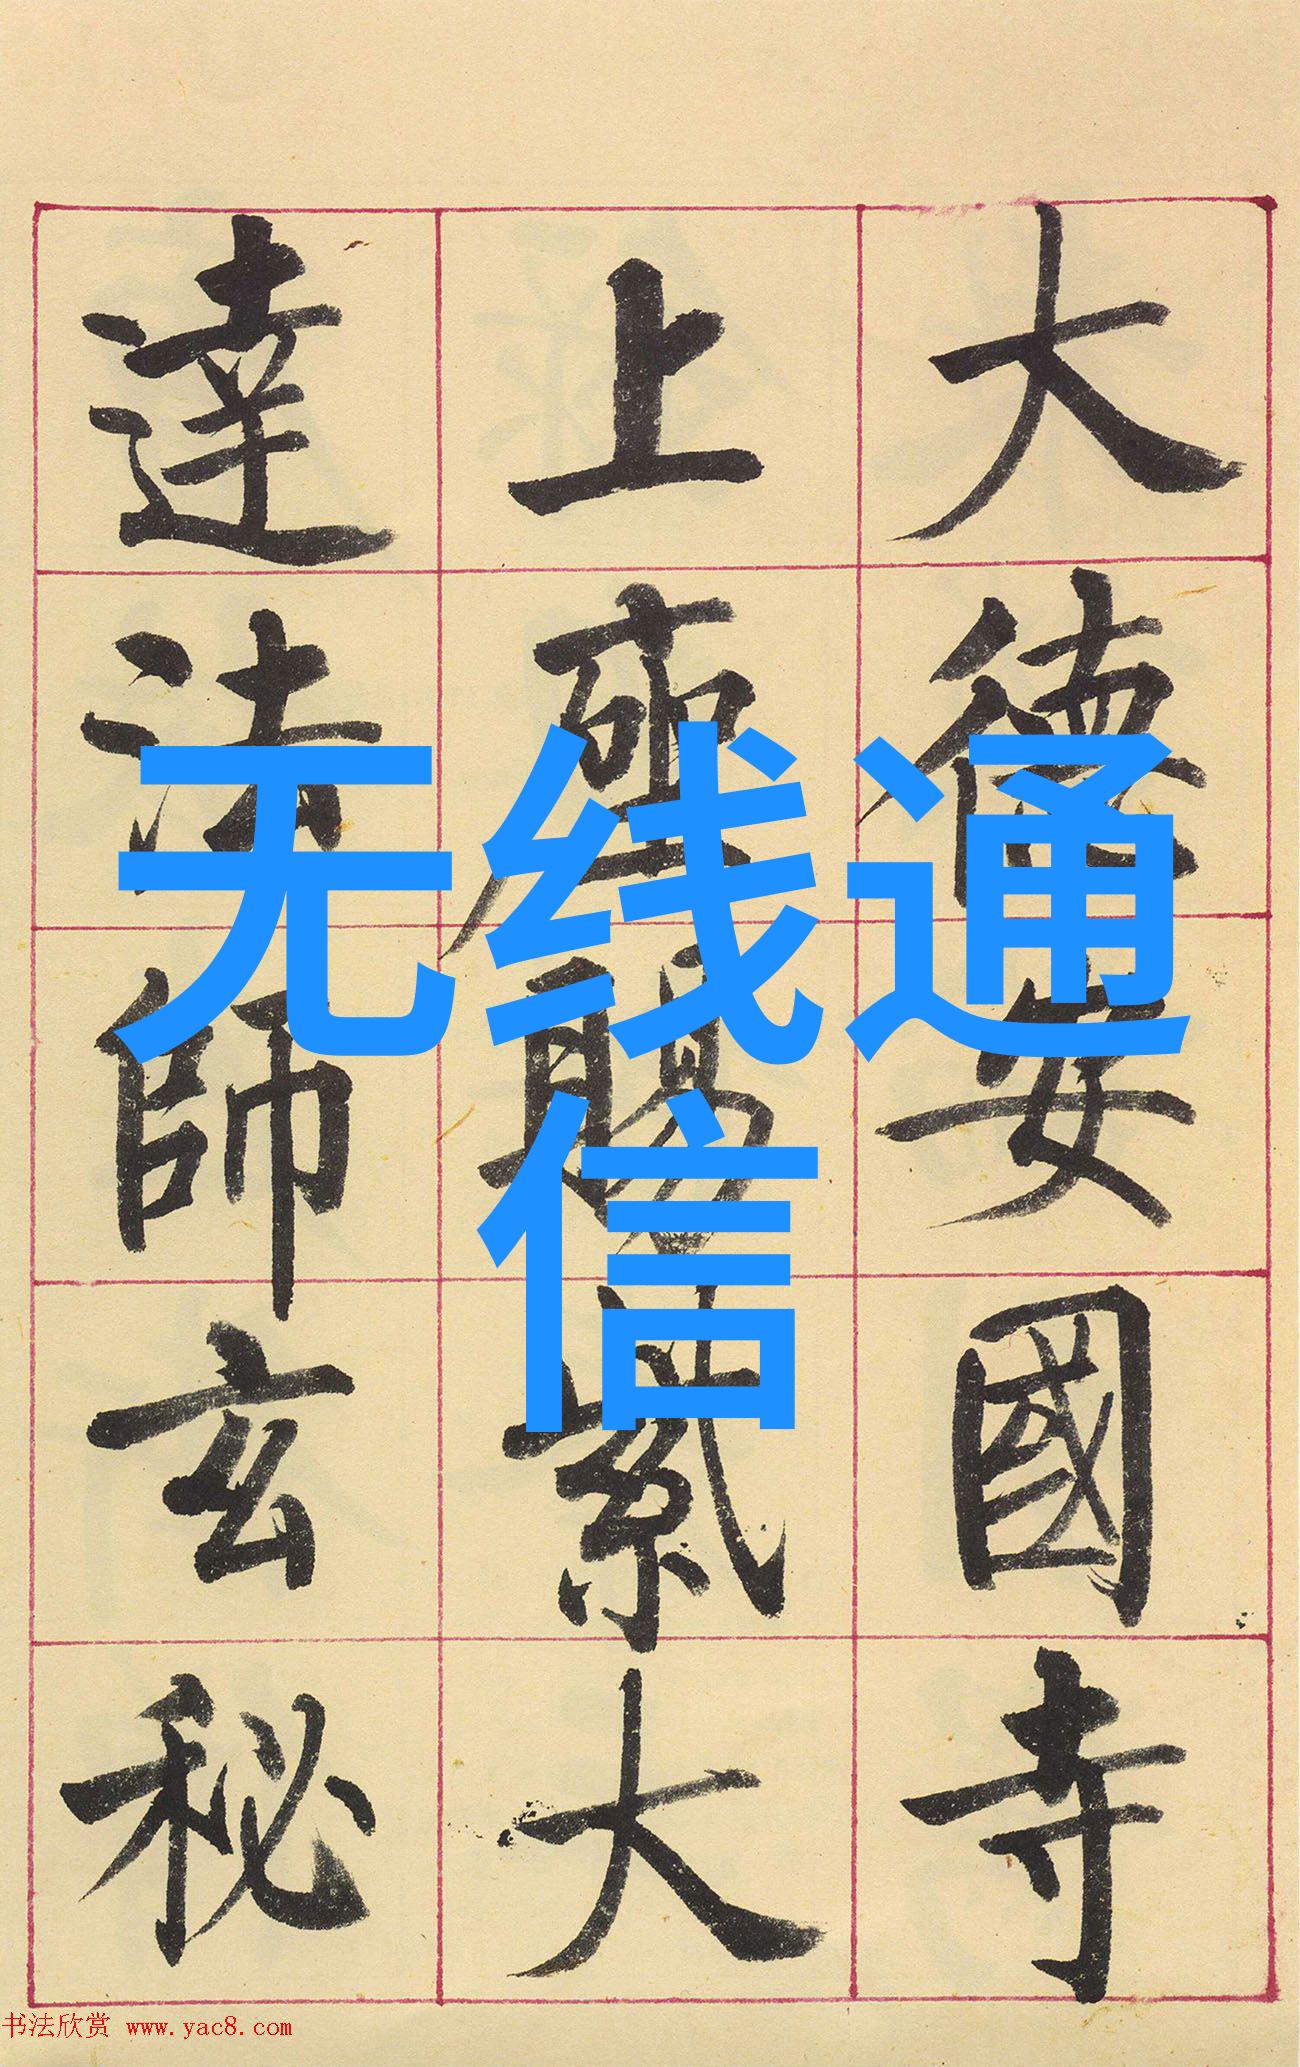 大德安國寺
上座賜紫大
達法師玄秘
无线通
信
书法欣赏 www.yac8.com